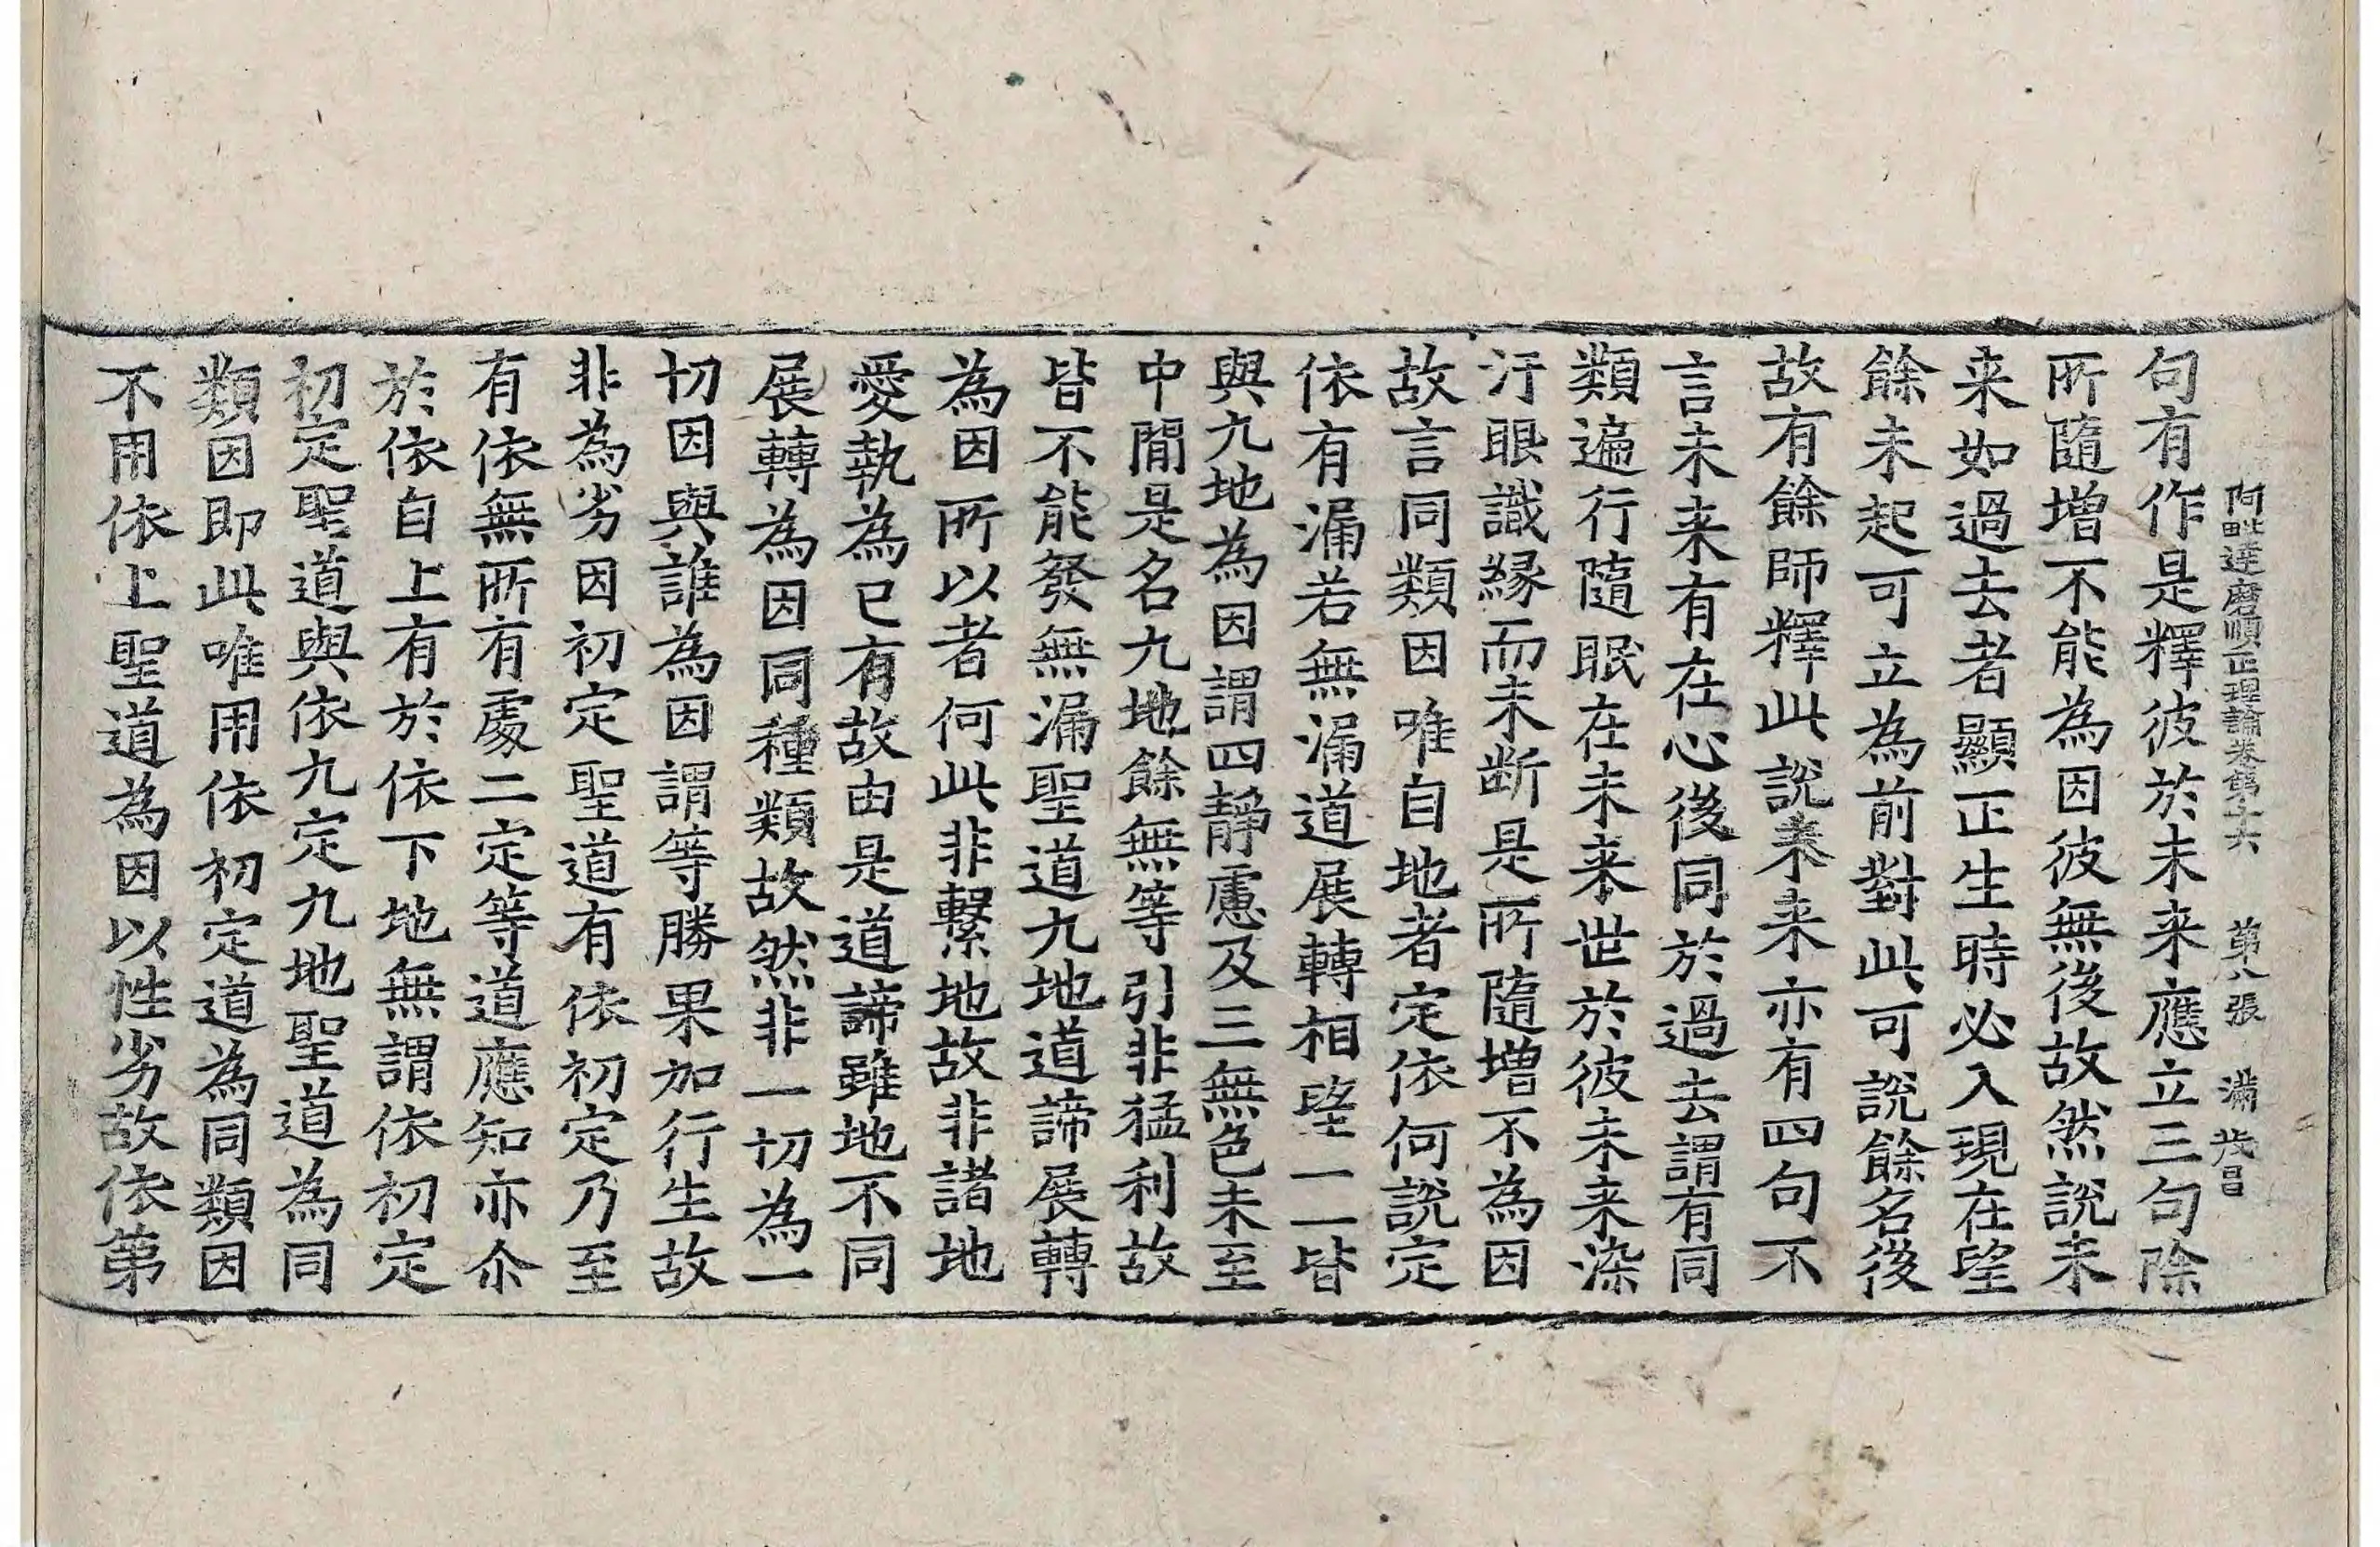 阿毗達磨順正理論卷第十六 第八張 滿 茂昌
句有作是釋彼於未来應立三句除
所隨增不能為因彼無後故然說未
来如過去者顯正生時必入現在望
餘未起可立為前對此可說餘名後
故有餘師釋此說未来亦有四句不
言未来有在心後同於過去謂有同
類遍行隨眠在未来世於彼未来染
汙眼識緣而未断是所隨增不為因
故言同類因唯自地者定依何說定
依有漏若無漏道展轉相望一一皆
與九地為因謂四靜慮及三無色未至
中間是名九地餘無等引非猛利故
皆不能發無漏聖道九地道諦展轉
為因所以者何此非繫地故非諸地
愛執為已有故由是道諦雖地不同
展轉為因同種類故然非一切為一
切因與誰為因謂等勝果加行生故
非為劣因初定聖道有依初定乃至
有依無所有處二定等道應知亦尒
於依自上有於依下地無謂依初定
初定聖道與依九定九地聖道為同
類因即此唯用依初定道為同類因
不用依上聖道為因以性劣故依第